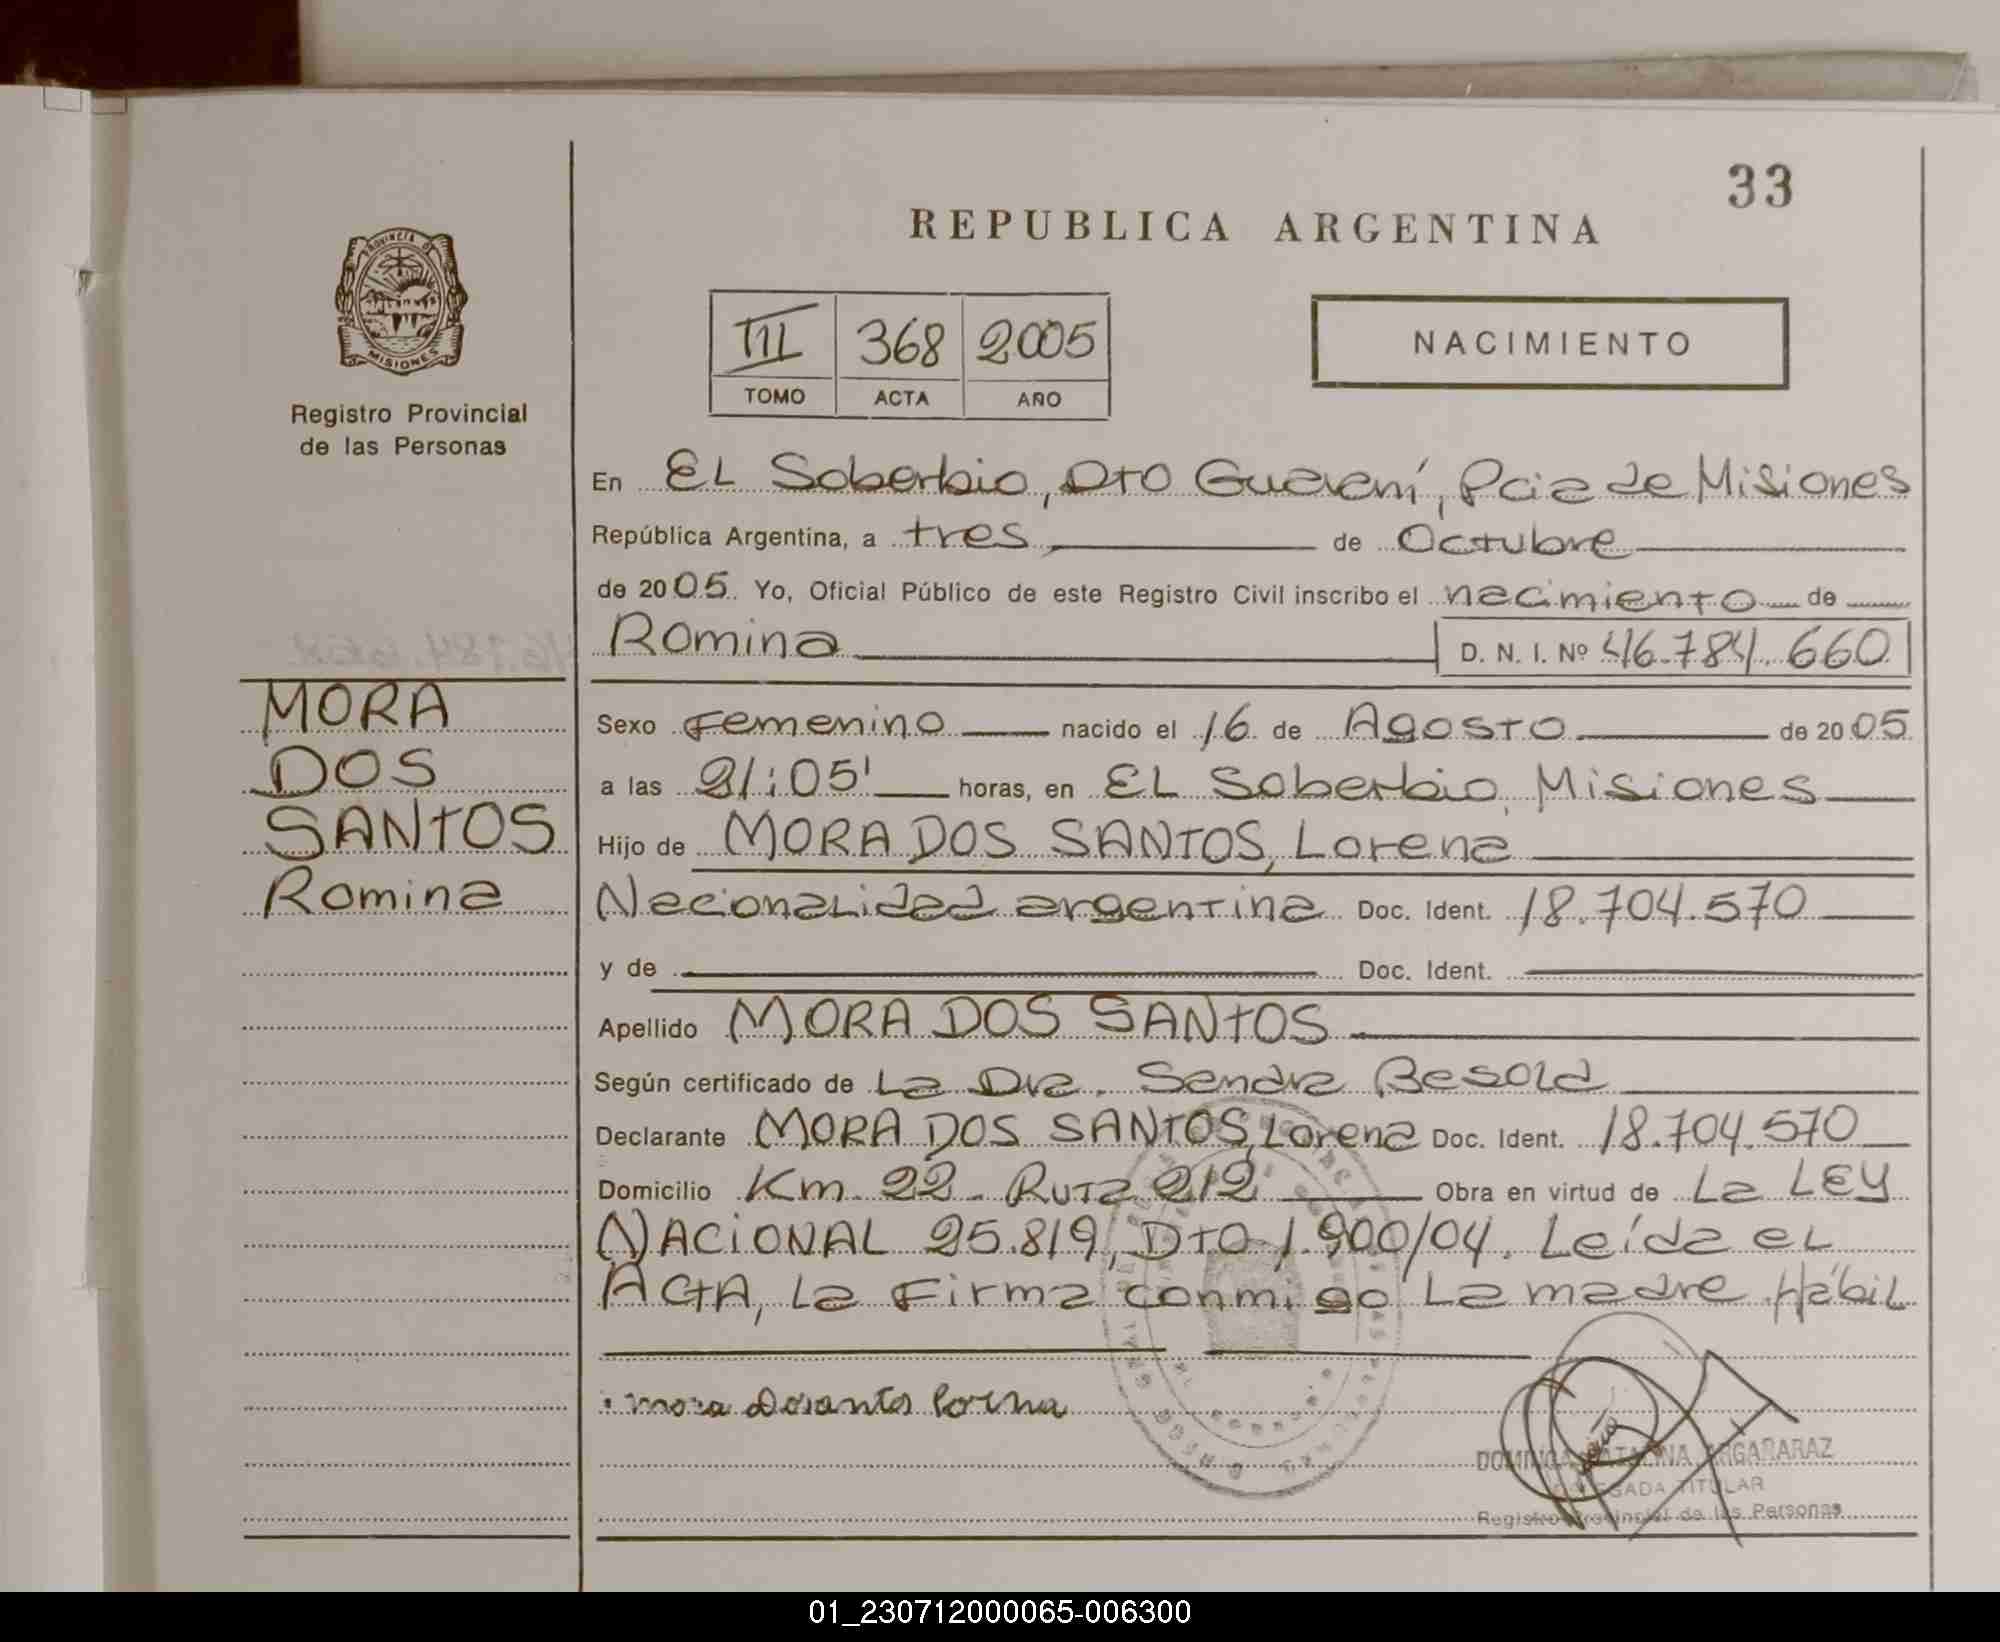 33
REPUBLICA ARGENTINA
PROVINCIA D
MISIONES
Registro Provincial
de las Personas
III 368 2005
TOMO ACTA AÑO
NACIMIENTO
En EL Soberbio, DTO Guaraní, Pcia de Misiones
República Argentina, a tres de Octubre
de 2005. Yo, Oficial Público de este Registro Civil inscribo el nacimiento de
Romina D. N. I. Nº 46.784.660
MORA
DOS
SANTOS
Romina
Sexo Femenino nacido el 16 de Agosto de 2005
a las 21:05' horas, en EL Soberbio, Misiones
Hijo de MORA DOS SANTOS, Lorena
Nacionalidad argentina Doc. Ident. 18.704.570
y de Doc. Ident.
Apellido MORA DOS SANTOS
Según certificado de La Dra. Sandra Besold
Declarante MORA DOS SANTOS, Lorena Doc. Ident. 18.704.570
Domicilio Km. 22 - Ruta 212 Obra en virtud de La LEY
NACIONAL 25.819, DTO 1.900/04. Leída el
ACTA, La Firma conmigo La madre Hábil
mora Dosantos lorena
DOMINGA CATALINA ARGARARAZ
DELEGADA TITULAR
Registro Provincial de las Personas
01_230712000065-006300